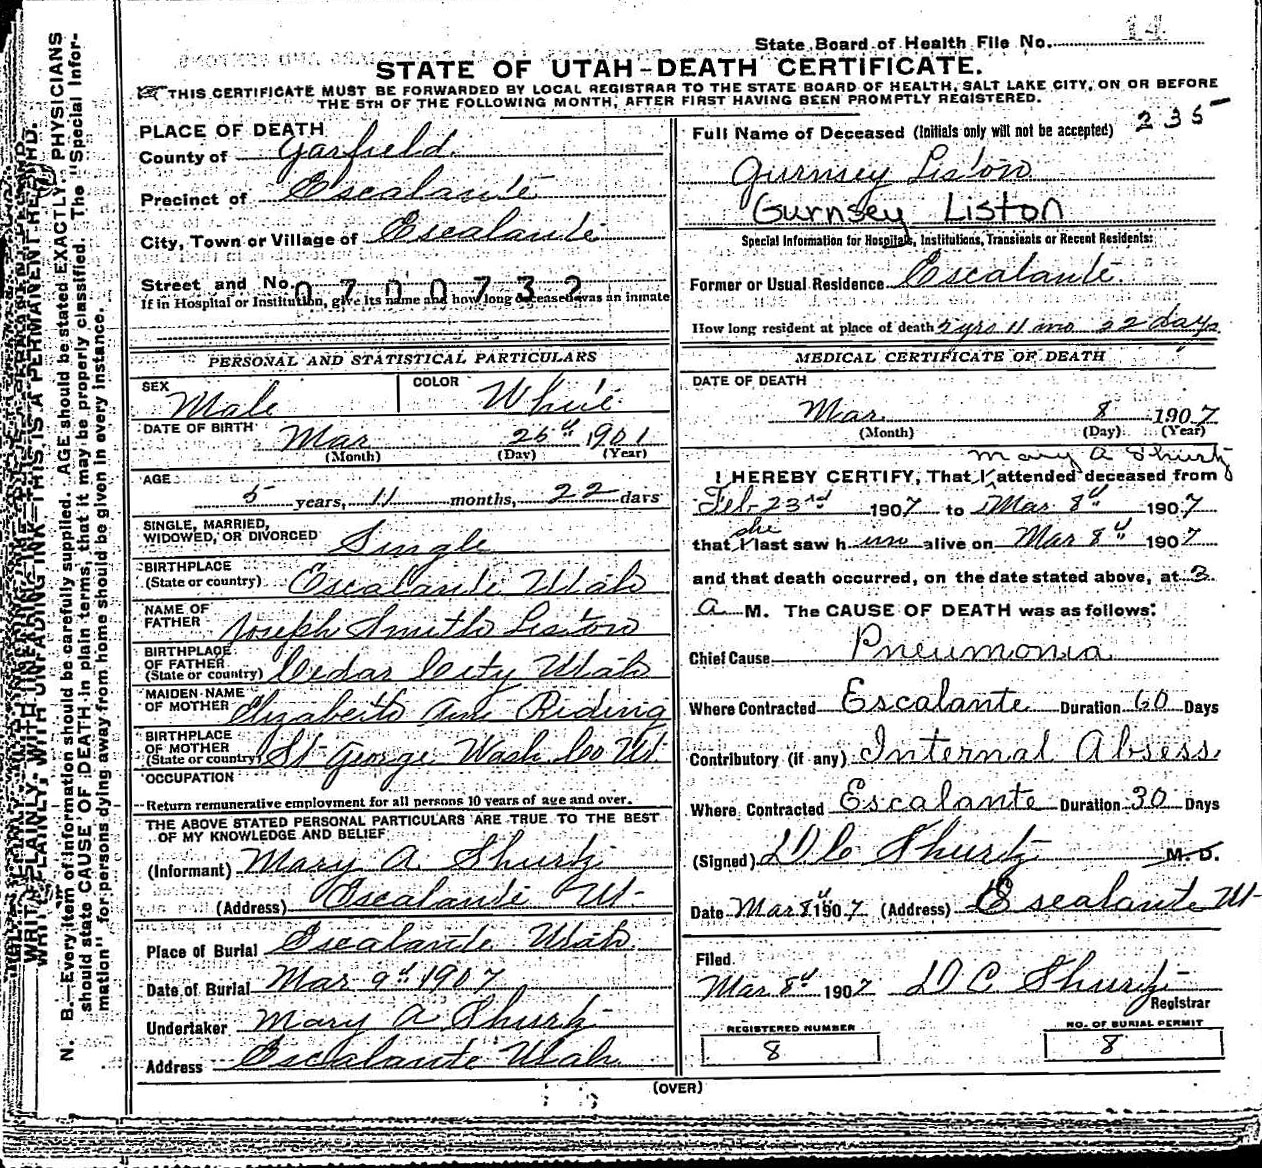 14
State Board of Health File No.
STATE OF UTAH-DEATH CERTIFICATE.
THIS CERTIFICATE MUST BE FORWARDED BY LOCAL REGISTRAR TO THE STATE BOARD OF HEALTH, SALT LAKE CITY, ON OR BEFORE
THE 5TH OF THE FOLLOWING MONTH, AFTER FIRST HAVING BEEN PROMPTLY REGISTERED.
PLACE OF DEATH
County of Garfield
Precinct of Escalante
City, Town or Village of Escalante
Street and No. 0700732
If in Hospital or Institution, give its name and how long deceased was an inmate
PERSONAL AND STATISTICAL PARTICULARS
SEX Male COLOR White
DATE OF BIRTH Mar 25" 1901
(Month) (Day) (Year)
AGE 5 years, 11 months, 22 days
SINGLE, MARRIED,
WIDOWED, OR DIVORCED Single
BIRTHPLACE
(State or country) Escalante Utah
NAME OF
FATHER Joseph Smith Liston
BIRTHPLACE
OF FATHER
(State or country) Cedar City Utah
MAIDEN NAME
OF MOTHER Elizabeth Ann Riding
BIRTHPLACE
OF MOTHER
(State or country) St George Wash Co Ut
OCCUPATION
Return remunerative employment for all persons 10 years of age and over.
THE ABOVE STATED PERSONAL PARTICULARS ARE TRUE TO THE BEST
OF MY KNOWLEDGE AND BELIEF
(Informant) Mary A Shurtz
(Address) Escalante Ut-
Place of Burial Escalante Utah
Date of Burial Mar 9" 1907
Undertaker Mary A Shurtz
Address Escalante Utah
Full Name of Deceased (Initials only will not be accepted) 235
Gurnsey Liston
Gurnsey Liston
Special Information for Hospitals, Institutions, Transients or Recent Residents:
Former or Usual Residence Escalante
How long resident at place of death 5 yrs 11 mo 22 days
MEDICAL CERTIFICATE OF DEATH
DATE OF DEATH
Mar 8 1907
(Month) (Day) (Year)
Mary A Shurtz
I HEREBY CERTIFY, That I attended deceased from
Feb 23rd 1907 to Mar 8" 1907
she
that I last saw him alive on Mar 8" 1907
and that death occurred, on the date stated above, at 3
a M. The CAUSE OF DEATH was as follows:
Chief Cause Pneumonia
Where Contracted Escalante Duration 60 Days
Contributory (if any) Internal Absess
Where Contracted Escalante Duration 30 Days
(Signed) D C Shurtz M. D.
Date Mar 8" 1907 (Address) Escalante Ut-
Filed
Mar 8" 1907 D C Shurtz
Registrar
REGISTERED NUMBER
8
NO. OF BURIAL PERMIT
8
(OVER)
WRITE PLAINLY, WITH UNFADING INK—THIS IS A PERMANENT RECORD.
N. B.—Every item of information should be carefully supplied. AGE should be stated EXACTLY. PHYSICIANS
should state CAUSE OF DEATH in plain terms, that it may be properly classified. The "Special Infor-
mation" for persons dying away from home should be given in every instance.